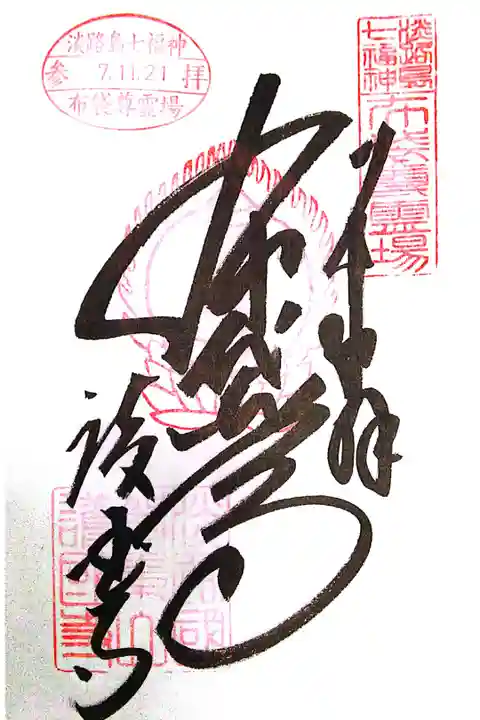 淡路島七福神
参 7.11.21 拝
布袋尊霊場
淡路島
七福神
布袋尊霊場
奉拝
布袋尊
護国寺